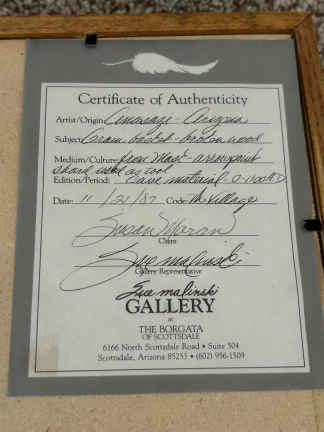 Certificate of Authenticity
Artist/Origin: Anasazi - Arizona
Subject: Grain basket - broken wood
Medium/Culture: from mast - arrowpoint
shard used as tool
Edition/Period: Cave material 0-1100 AD
Date: 11/21/87 Code: Village
Susan Moran
Sue Malinski
Gallery Representative
Sue Malinski
GALLERY
THE BORGATA
OF SCOTTSDALE
6166 North Scottsdale Road • Suite 504
Scottsdale, Arizona 85253 • (602) 956-1509